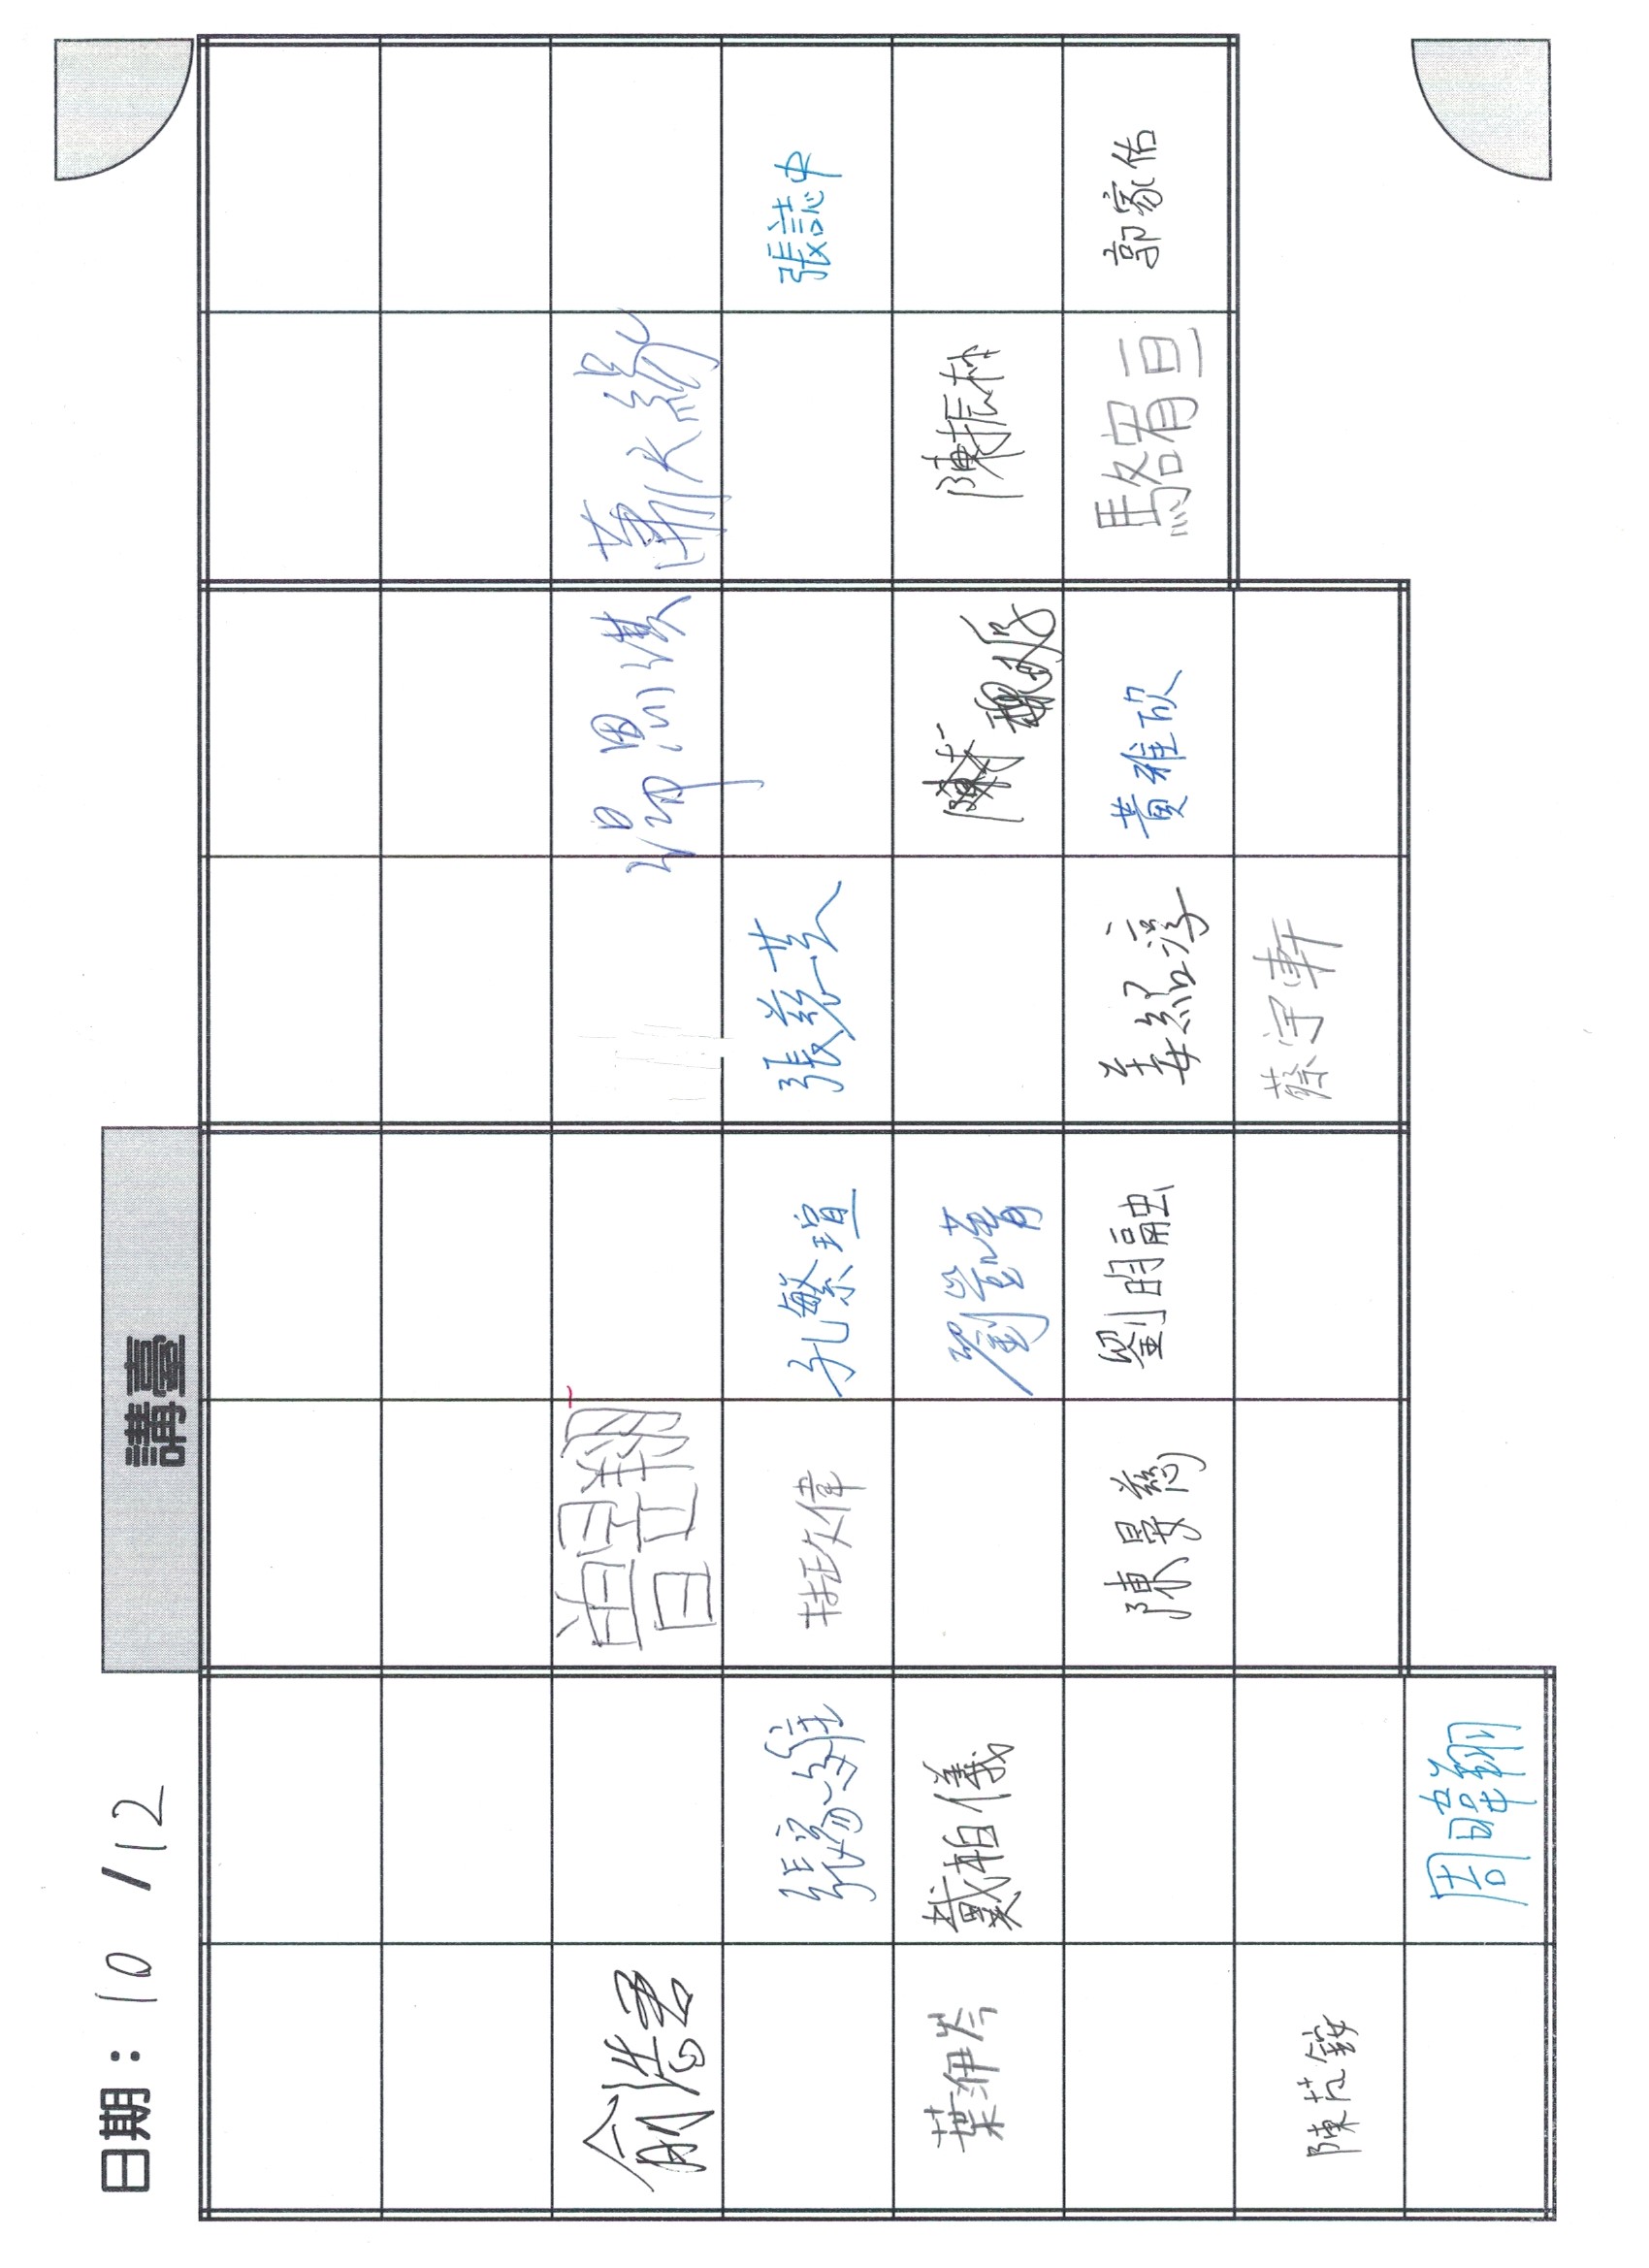 日期： 10 / 12
講臺
俞浩君 曾昱翔 湯思淇 蕭天緣
張家維 林政偉 孔繁瑄 張慈芸 張誌中
葉洢岑 戴柏儀 劉凱菁 魏 陳振林
陳晏慈 劉明融 姜紹淳 黃雅欣 駱宥亘 郭家佑
陳芃銨 蔡宇軒
周暐翔